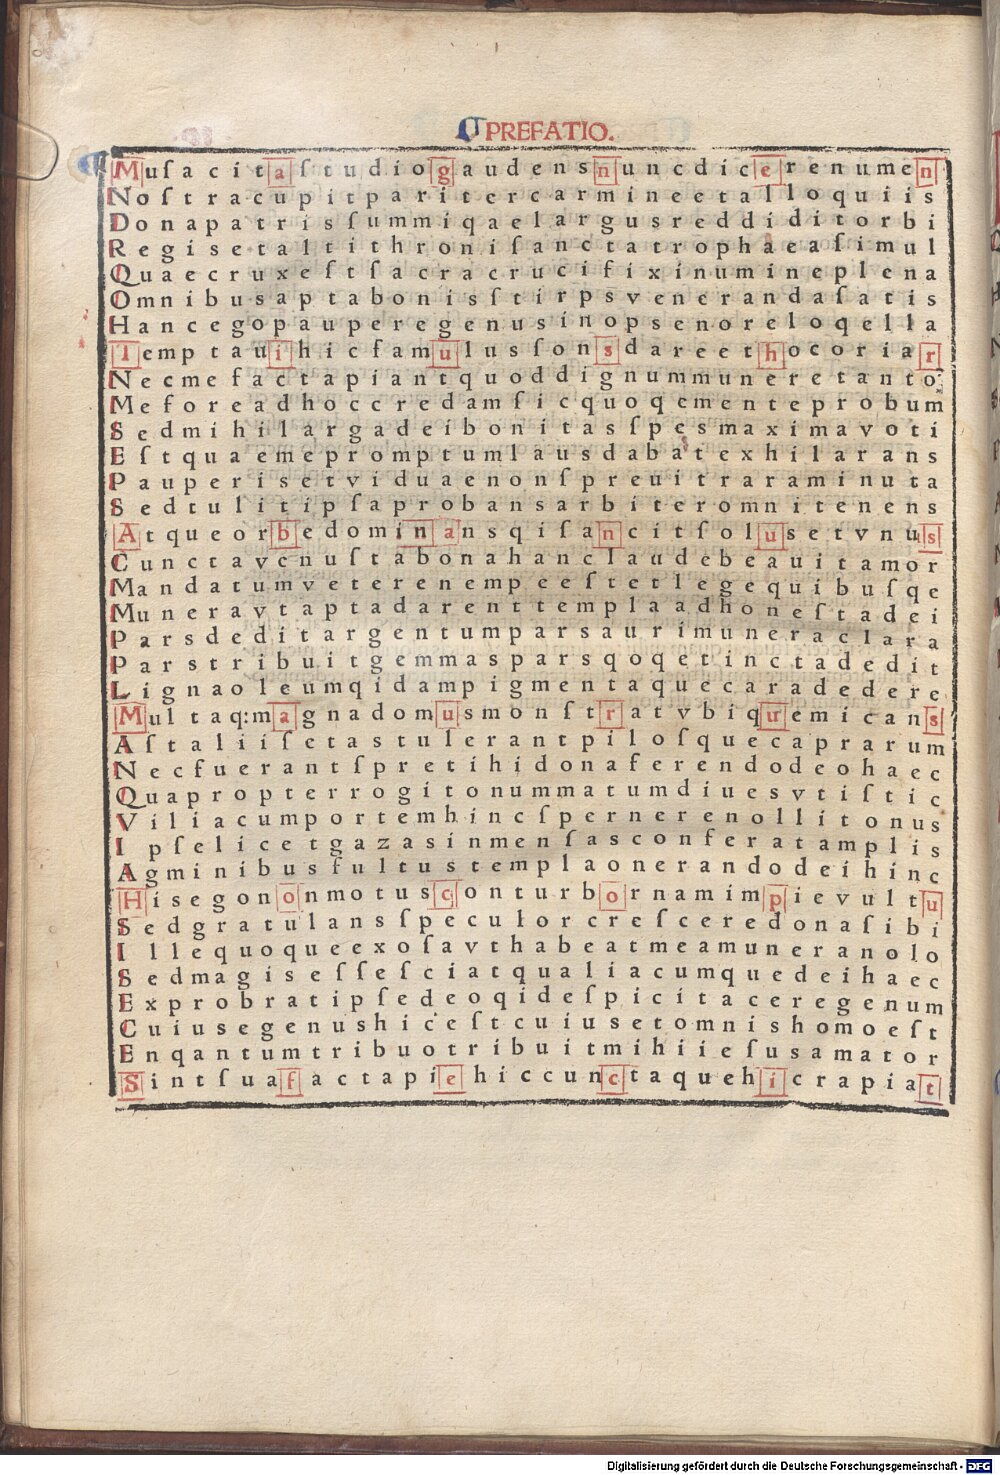 ¶PREFATIO.
Muſacitaſtudiogaudensnuncdicerenumen
Noſtracupitparitercarmineetalloquiis
Donapatrisſummiqaelargusreddiditorbi
Regisetaltithroniſanctatrophaeaſimul
Quaecruxeſtſacracrucifixinumineplena
Omnibusaptabonisſtirpsvenerandaſatis
Hancegopauperegenusinopsenoreloqella
Temptauihicfamulusſonsdareethocoriar
Necmefactapiantquoddignummuneretanto
Meforeadhoccredamſicquoqementeprobum
Sedmihilargadeibonitasſpesmaximavoti
Eſtquaemepromptumlausdabatexhilarans
Pauperisetviduaenonſpreuitraraminuta
Sedtulitipſaprobansarbiteromnitenens
Atqueorbedominansqiſancitſolusetvnus
Cunctavenuſtabonahanclaudebeauitamor
Mandatumveterenempeeſtetlegequibuſqe
Muneravtaptadarenttemplaadhoneſtadei
Parsdeditargentumparsaurimuneraclara
Parstribuitgemmasparsqoqetinctadedit
Lignaoleumqidampigmentaquecaradedere
Multaq:magnadomusmonſtratvbiquemicans
Aſtaliiſetastulerantpiloſquecaprarum
Necfuerantſpretihidonaferendodeohaec
Quapropterrogitonummatumdiuesvtiſtic
Viliacumportemhincſpernerenollitonus
Ipſelicetgazasinmenſasconferatamplis
Agminibusfultustemplaonerandodeihinc
Hisegononmotusconturbornamimpievultu
Sedgratulansſpeculorcreſceredonaſibi
Illequoqueexoſavthabeatmeamuneranolo
Sedmagiseſſeſciatqualiacumquedeihaec
Exprobratipſedeoqideſpicitaceregenum
Cuiusegenushiceſtcuiusetomnishomoeſt
Enqantumtribuotribuitmihiieſusamator
Sintſuafactapiehiccunctaquehicrapiat
Digitalisierung gefördert durch die Deutsche Forschungsgemeinschaft - DFG